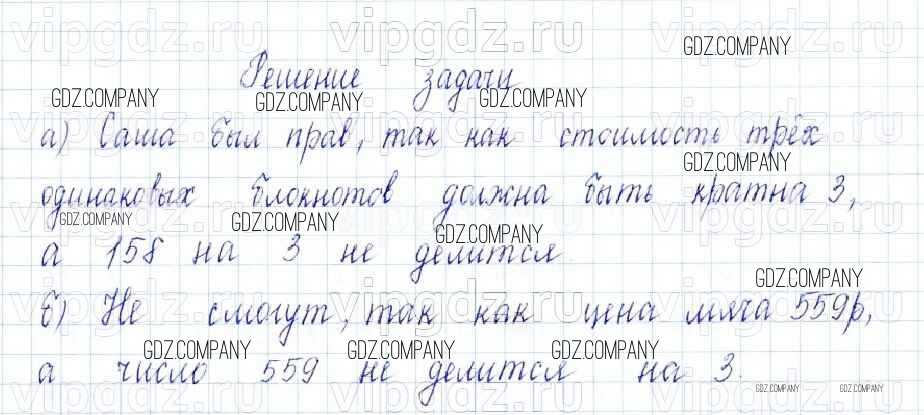 vipgdz.ru vipgdz.ru vipgdz.ru
GDZ.COMPANY
Решение задачи
GDZ.COMPANY GDZ.COMPANY GDZ.COMPANY
а) Саша был прав, так как стоимость трёх
GDZ.COMPANY
одинаковых блокнотов должна быть кратна 3,
GDZ.COMPANY GDZ.COMPANY GDZ.COMPANY
а 158 на 3 не делится
GDZ.COMPANY
б) Не смогут, так как цена мяча 559р,
GDZ.COMPANY GDZ.COMPANY GDZ.COMPANY
а число 559 не делится на 3.
GDZ.COMPANY GDZ.COMPANY